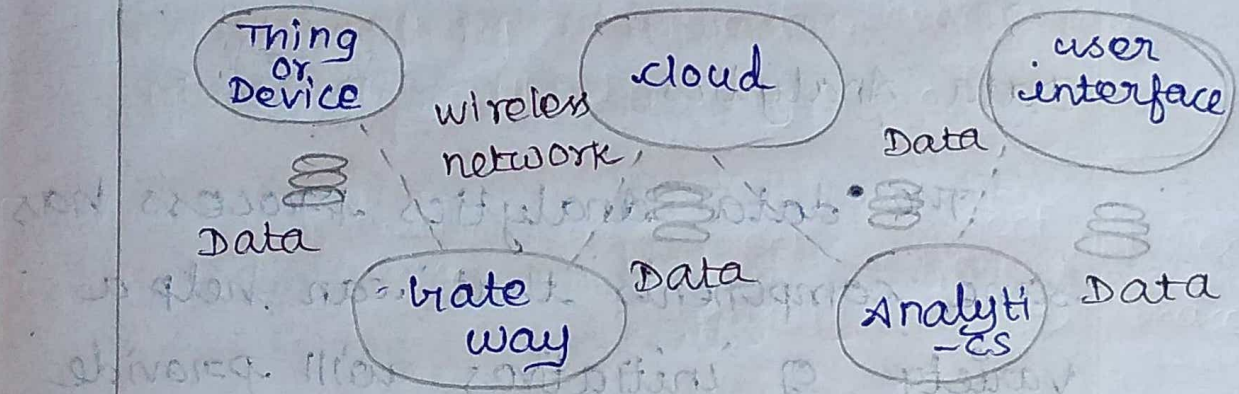 Thing
or
Device
wireless
network
cloud
user
interface
Data
Data
Gate
way
Data
Analyti
-cs
Data